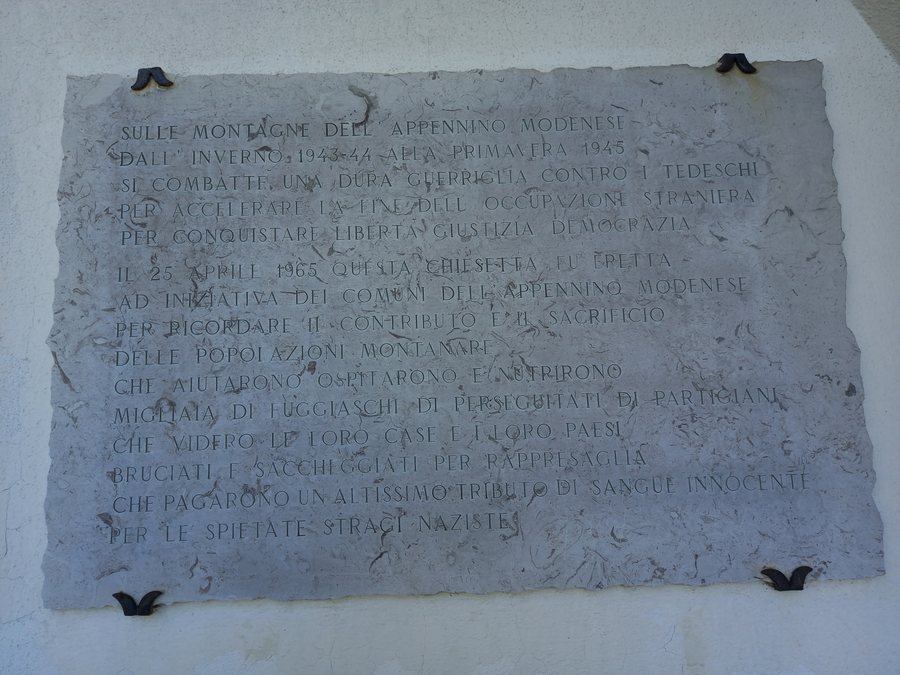 SULLE MONTAGNE DELL' APPENNINO MODENESE
DALL' INVERNO 1943-44 ALLA PRIMAVERA 1945
SI COMBATTE UNA DURA GUERRIGLIA CONTRO I TEDESCHI
PER ACCELERARE LA FINE DELL' OCCUPAZIONE STRANIERA
PER CONQUISTARE LIBERTA GIUSTIZIA DEMOCRAZIA
IL 25 APRILE 1965 QUESTA CHIESETTA FU ERETTA
AD INIZIATIVA DEI COMUNI DELL' APPENNINO MODENESE
PER RICORDARE IL CONTRIBUTO E IL SACRIFICIO
DELLE POPOLAZIONI MONTANARE
CHE AIUTARONO OSPITARONO E NUTRIRONO
MIGLIAIA DI FUGGIASCHI DI PERSEGUITATI DI PARTIGIANI
CHE VIDERO LE LORO CASE E I LORO PAESI
BRUCIATI E SACCHEGGIATI PER RAPPRESAGLIA
CHE PAGARONO UN ALTISSIMO TRIBUTO DI SANGUE INNOCENTE
PER LE SPIETATE STRAGI NAZISTE